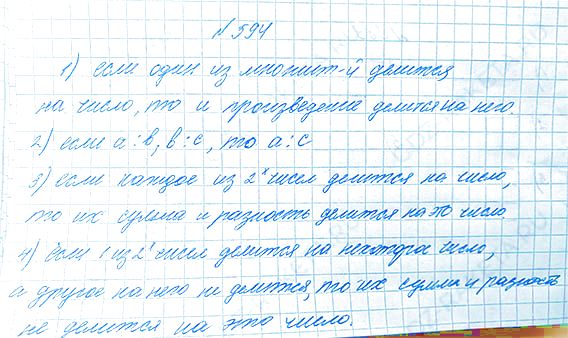 № 594
1) если один из множит-й делится
на число, то и произведение делится на него.
2) если a : b, b : c, то a : c
3) если каждое из 2ˣ чисел делится на число,
то их сумма и разность делится на это число
4) если 1 из 2ˣ чисел делится на некоторое число,
а другое на него не делится, то их сумма и разность
не делится на это число.